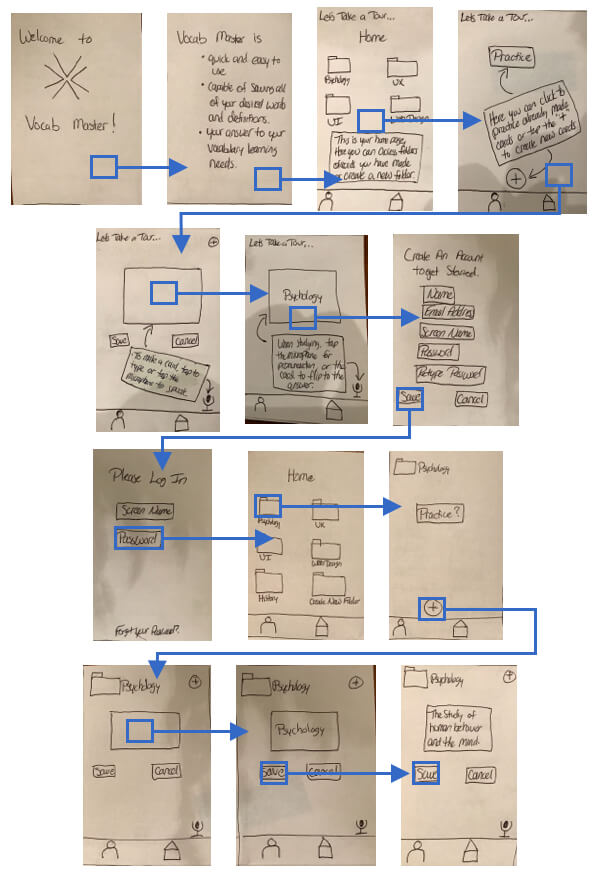 Welcome to
Vocab Master!
Vocab Master is
• quick and easy to
use
• capable of saving all
of your desired words
and definitions.
• your answer to your
vocabulary learning
needs.
Let's Take a Tour...
Home
Psychology
UX
UI
Web Design
This is your home page.
Here you can access folders
already you have made
or create a new folder.
Let's Take a Tour...
Practice
Here you can click to
practice already made
cards or tap the "+"
to create new cards
+
Let's Take a Tour...
+
Save
Cancel
To make a card, tap to
type or tap the
microphone to speak.
Let's Take a Tour...
Psychology
When studying, tap
the microphone for
pronunciation, or the
card to flip to the
answer.
Create An Account
to get Started.
Name
Email Address
Screen Name
Password
Retype Password
Save
Cancel
Please Log In
Screen Name
Password
Forgot your Password?
Home
Psychology
UX
UI
Web Design
History
Create New Folder
Psychology
Practice?
+
Psychology
+
Save
Cancel
Psychology
+
Psychology
Save
Cancel
Psychology
+
The Study of
human behavior
and the mind.
Save
Cancel